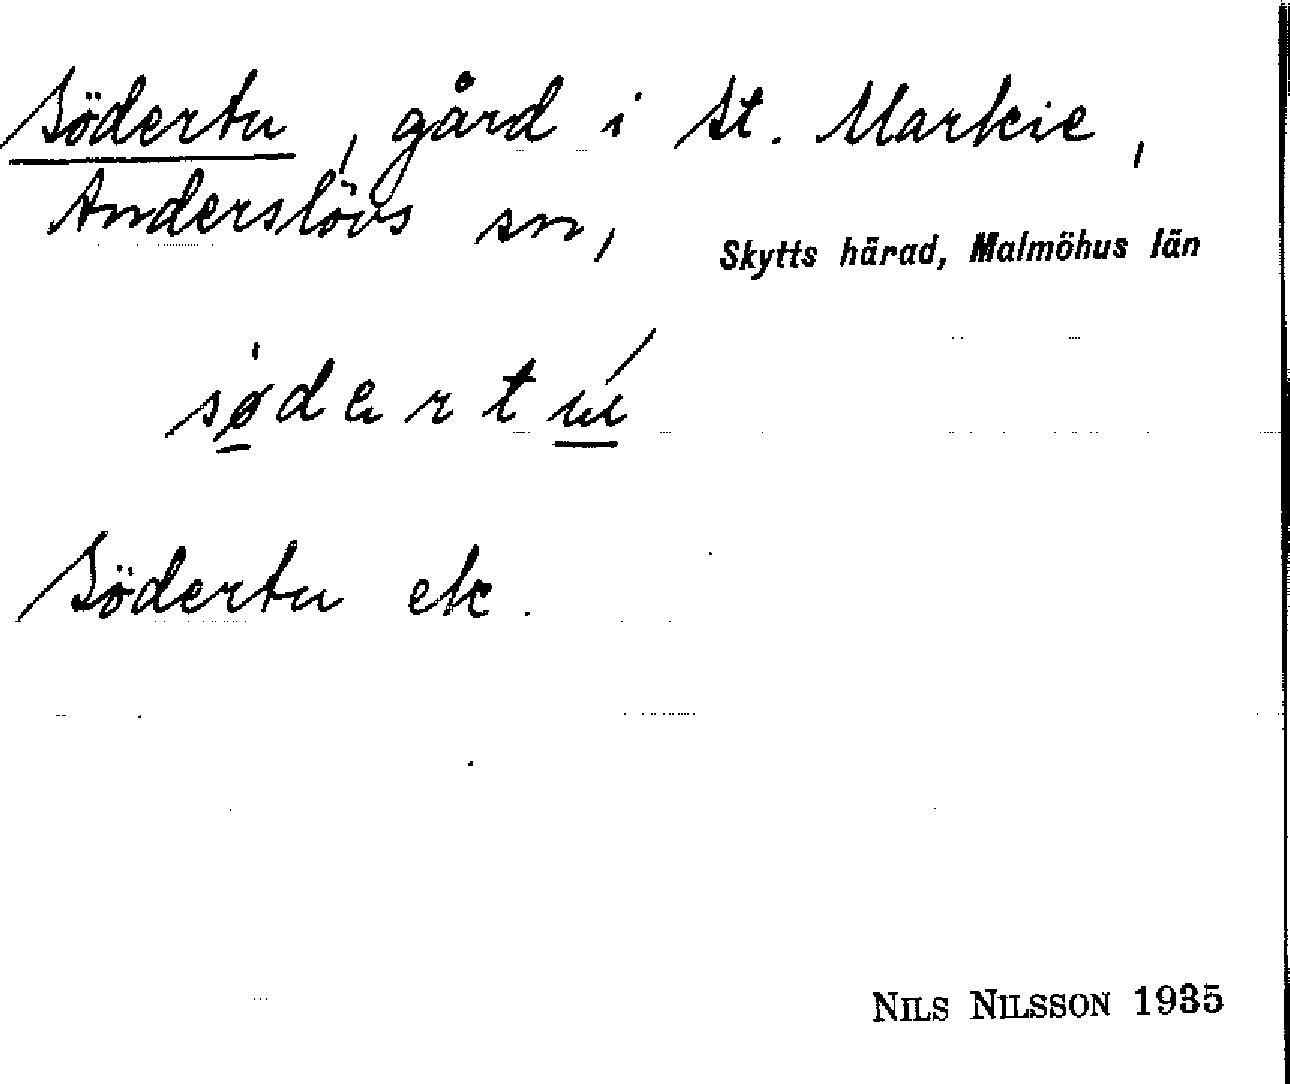 Södertu, gård i St. Markie,
Anderslövs sn, Skytts härad, Malmöhus län
södertú
Södertu ek.
NILS NILSSON 1935